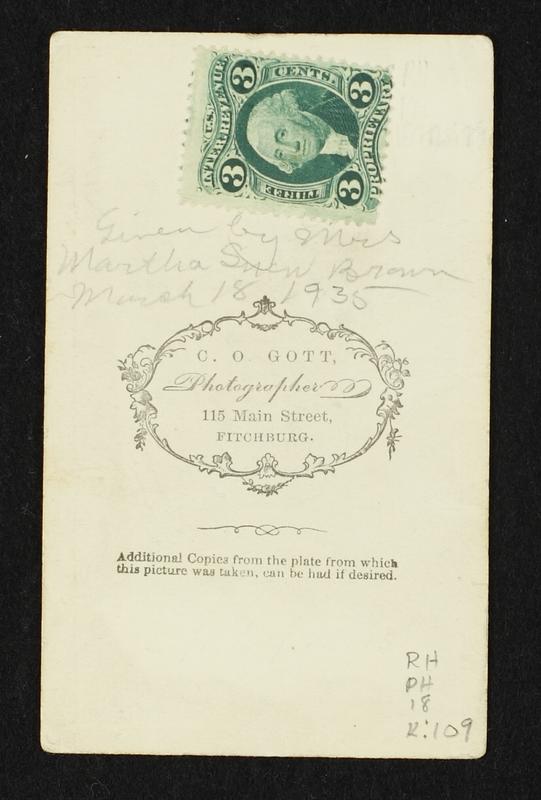 3 CENTS. 3
U.S. INTER. REVENUE
PROPRIETARY
3 THREE 3
Given by Mrs
Martha Brown
March 18, 1935
C. O. GOTT,
Photographer
115 Main Street,
FITCHBURG.
Additional Copies from the plate from which
this picture was taken, can be had if desired.
RH
PH
18
K:109